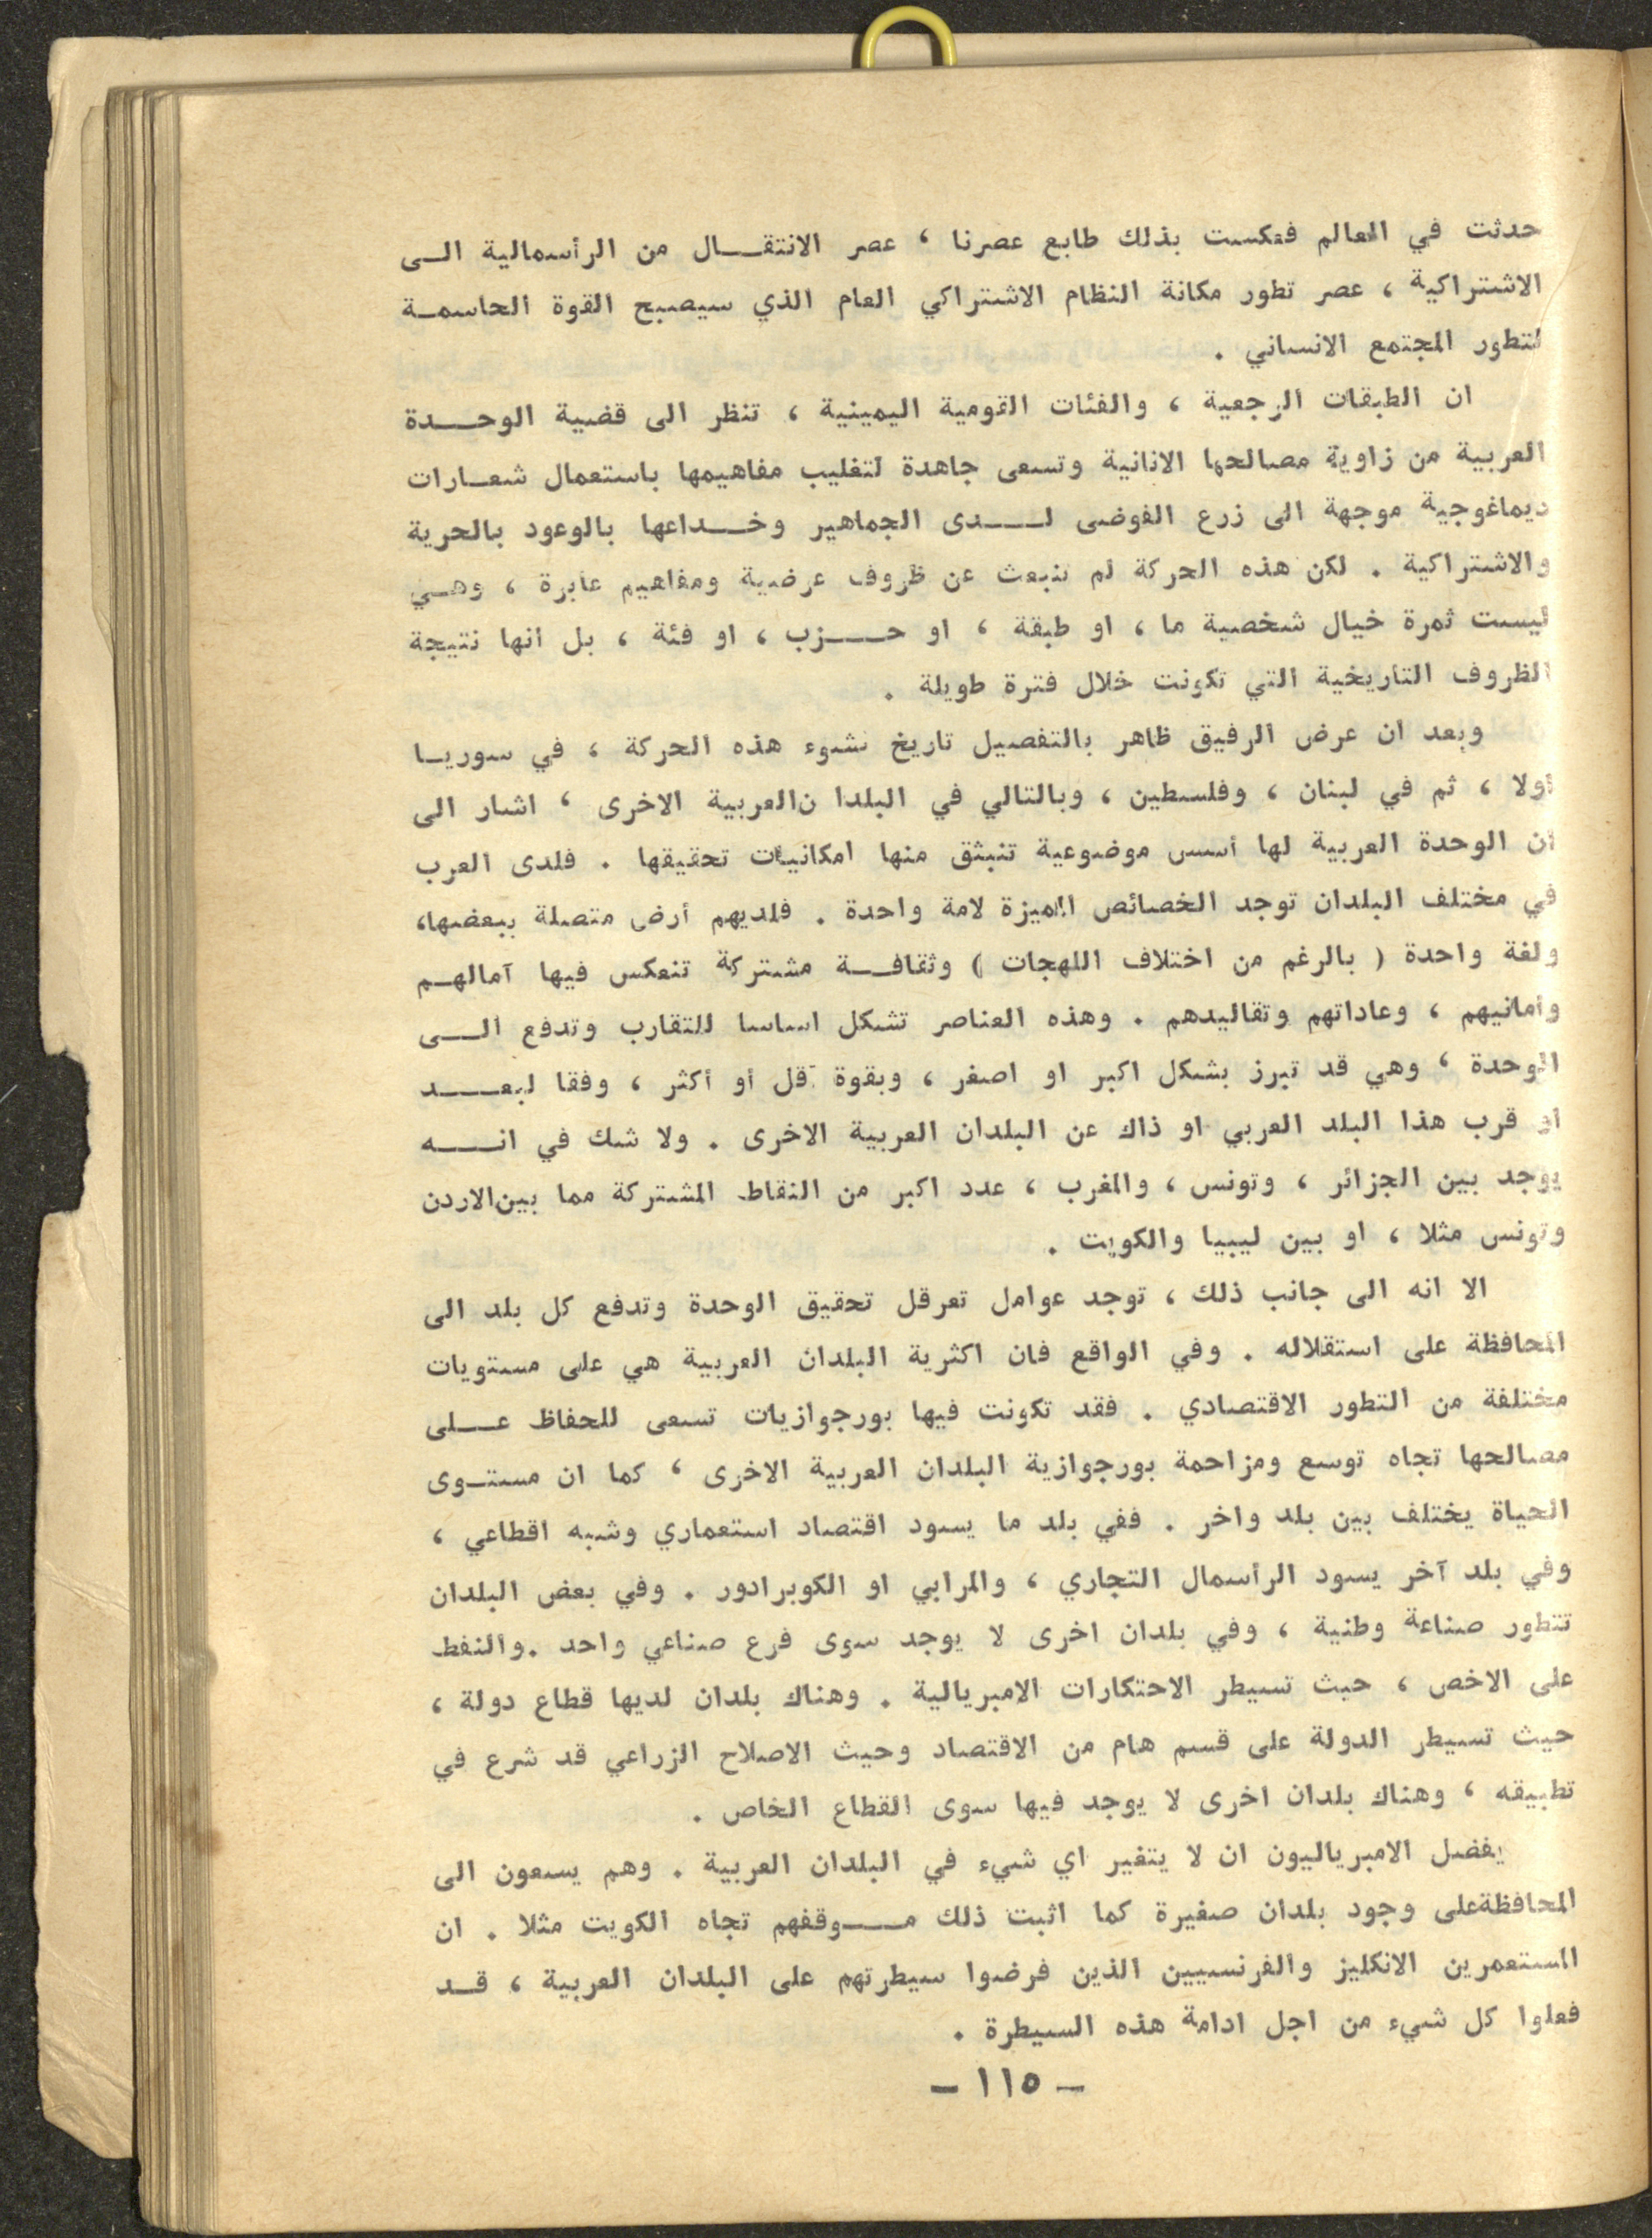 حدثت في العالم فعكست بذلك طابع عصرنا ، عصر الانتقال من الرأسمالية الى
الاشتراكية ، عصر تطور مكانة النظام الاشتراكي العام الذي سيصبح القوة الحاسمة
لتطور المجتمع الانساني .
ان الطبقات الرجعية ، والفئات القومية اليمينية ، تنظر الى قضية الوحدة
العربية من زاوية مصالحها الانانية وتسعى جاهدة لتغليب مفاهيمها باستعمال شعارات
ديماغوجية موجهة الى زرع الفوضى لدى الجماهير وخداعها بالوعود بالحرية
والاشتراكية . لكن هذه الحركة لم تنبعث عن ظروف عرضية ومفاهيم عابرة ، وهي
ليست ثمرة خيال شخصية ما ، او طبقة ، او حزب ، او فئة ، بل انها نتيجة
الظروف التاريخية التي تكونت خلال فترة طويلة .
وبعد ان عرض الرفيق ظاهر بالتفصيل تاريخ نشوء هذه الحركة ، في سوريا
أولا ، ثم في لبنان ، وفلسطين ، وبالتالي في البلدا نالعربية الاخرى ، اشار الى
ان الوحدة العربية لها أسس موضوعية تنبثق منها امكانيات تحقيقها . فلدى العرب
في مختلف البلدان توجد الخصائص المميزة لامة واحدة . فلديهم أرض متصلة ببعضها،
ولغة واحدة ( بالرغم من اختلاف اللهجات ) وثقافة مشتركة تنعكس فيها آمالهم
وأمانيهم ، وعاداتهم وتقاليدهم . وهذه العناصر تشكل اساسا للتقارب وتدفع الى
الوحدة ، وهي قد تبرز بشكل اكبر او اصغر ، وبقوة أقل أو أكثر ، وفقا لبعد
او قرب هذا البلد العربي او ذاك عن البلدان العربية الاخرى . ولا شك في انه
يوجد بين الجزائر ، وتونس ، والمغرب ، عدد اكبر من النقاط المشتركة مما بين الاردن
وتونس مثلا ، او بين ليبيا والكويت .
الا انه الى جانب ذلك ، توجد عوامل تعرقل تحقيق الوحدة وتدفع كل بلد الى
المحافظة على استقلاله . وفي الواقع فان اكثرية البلدان العربية هي على مستويات
مختلفة من التطور الاقتصادي . فقد تكونت فيها بورجوازيات تسعى للحفاظ على
مصالحها تجاه توسع ومزاحمة بورجوازية البلدان العربية الاخرى ، كما ان مستوى
الحياة يختلف بين بلد واخر . ففي بلد ما يسود اقتصاد استعماري وشبه اقطاعي ،
وفي بلد آخر يسود الرأسمال التجاري ، والمرابي او الكوبرادور . وفي بعض البلدان
تتطور صناعة وطنية ، وفي بلدان اخرى لا يوجد سوى فرع صناعي واحد .والنفط
على الاخص ، حبث تسيطر الاحتكارات الامبريالية . وهناك بلدان لديها قطاع دولة ،
حيث تسيطر الدولة على قسم هام من الاقتصاد وحيث الاصلاح الزراعي قد شرع في
تطبيقه ، وهناك بلدان اخرى لا يوجد فيها سوى القطاع الخاص .
يفضل الامبرياليون ان لا يتغير اي شيء في البلدان العربية . وهم يسعون الى
المحافظةعلى وجود بلدان صغيرة كما اثبت ذلك موقفهم تجاه الكويت مثلا . ان
المستعمرين الانكليز والفرنسيين الذين فرضوا سيطرتهم على البلدان العربية ، قد
فعلوا كل شيء من اجل ادامة هذه السيطرة .
– ١١٥ –